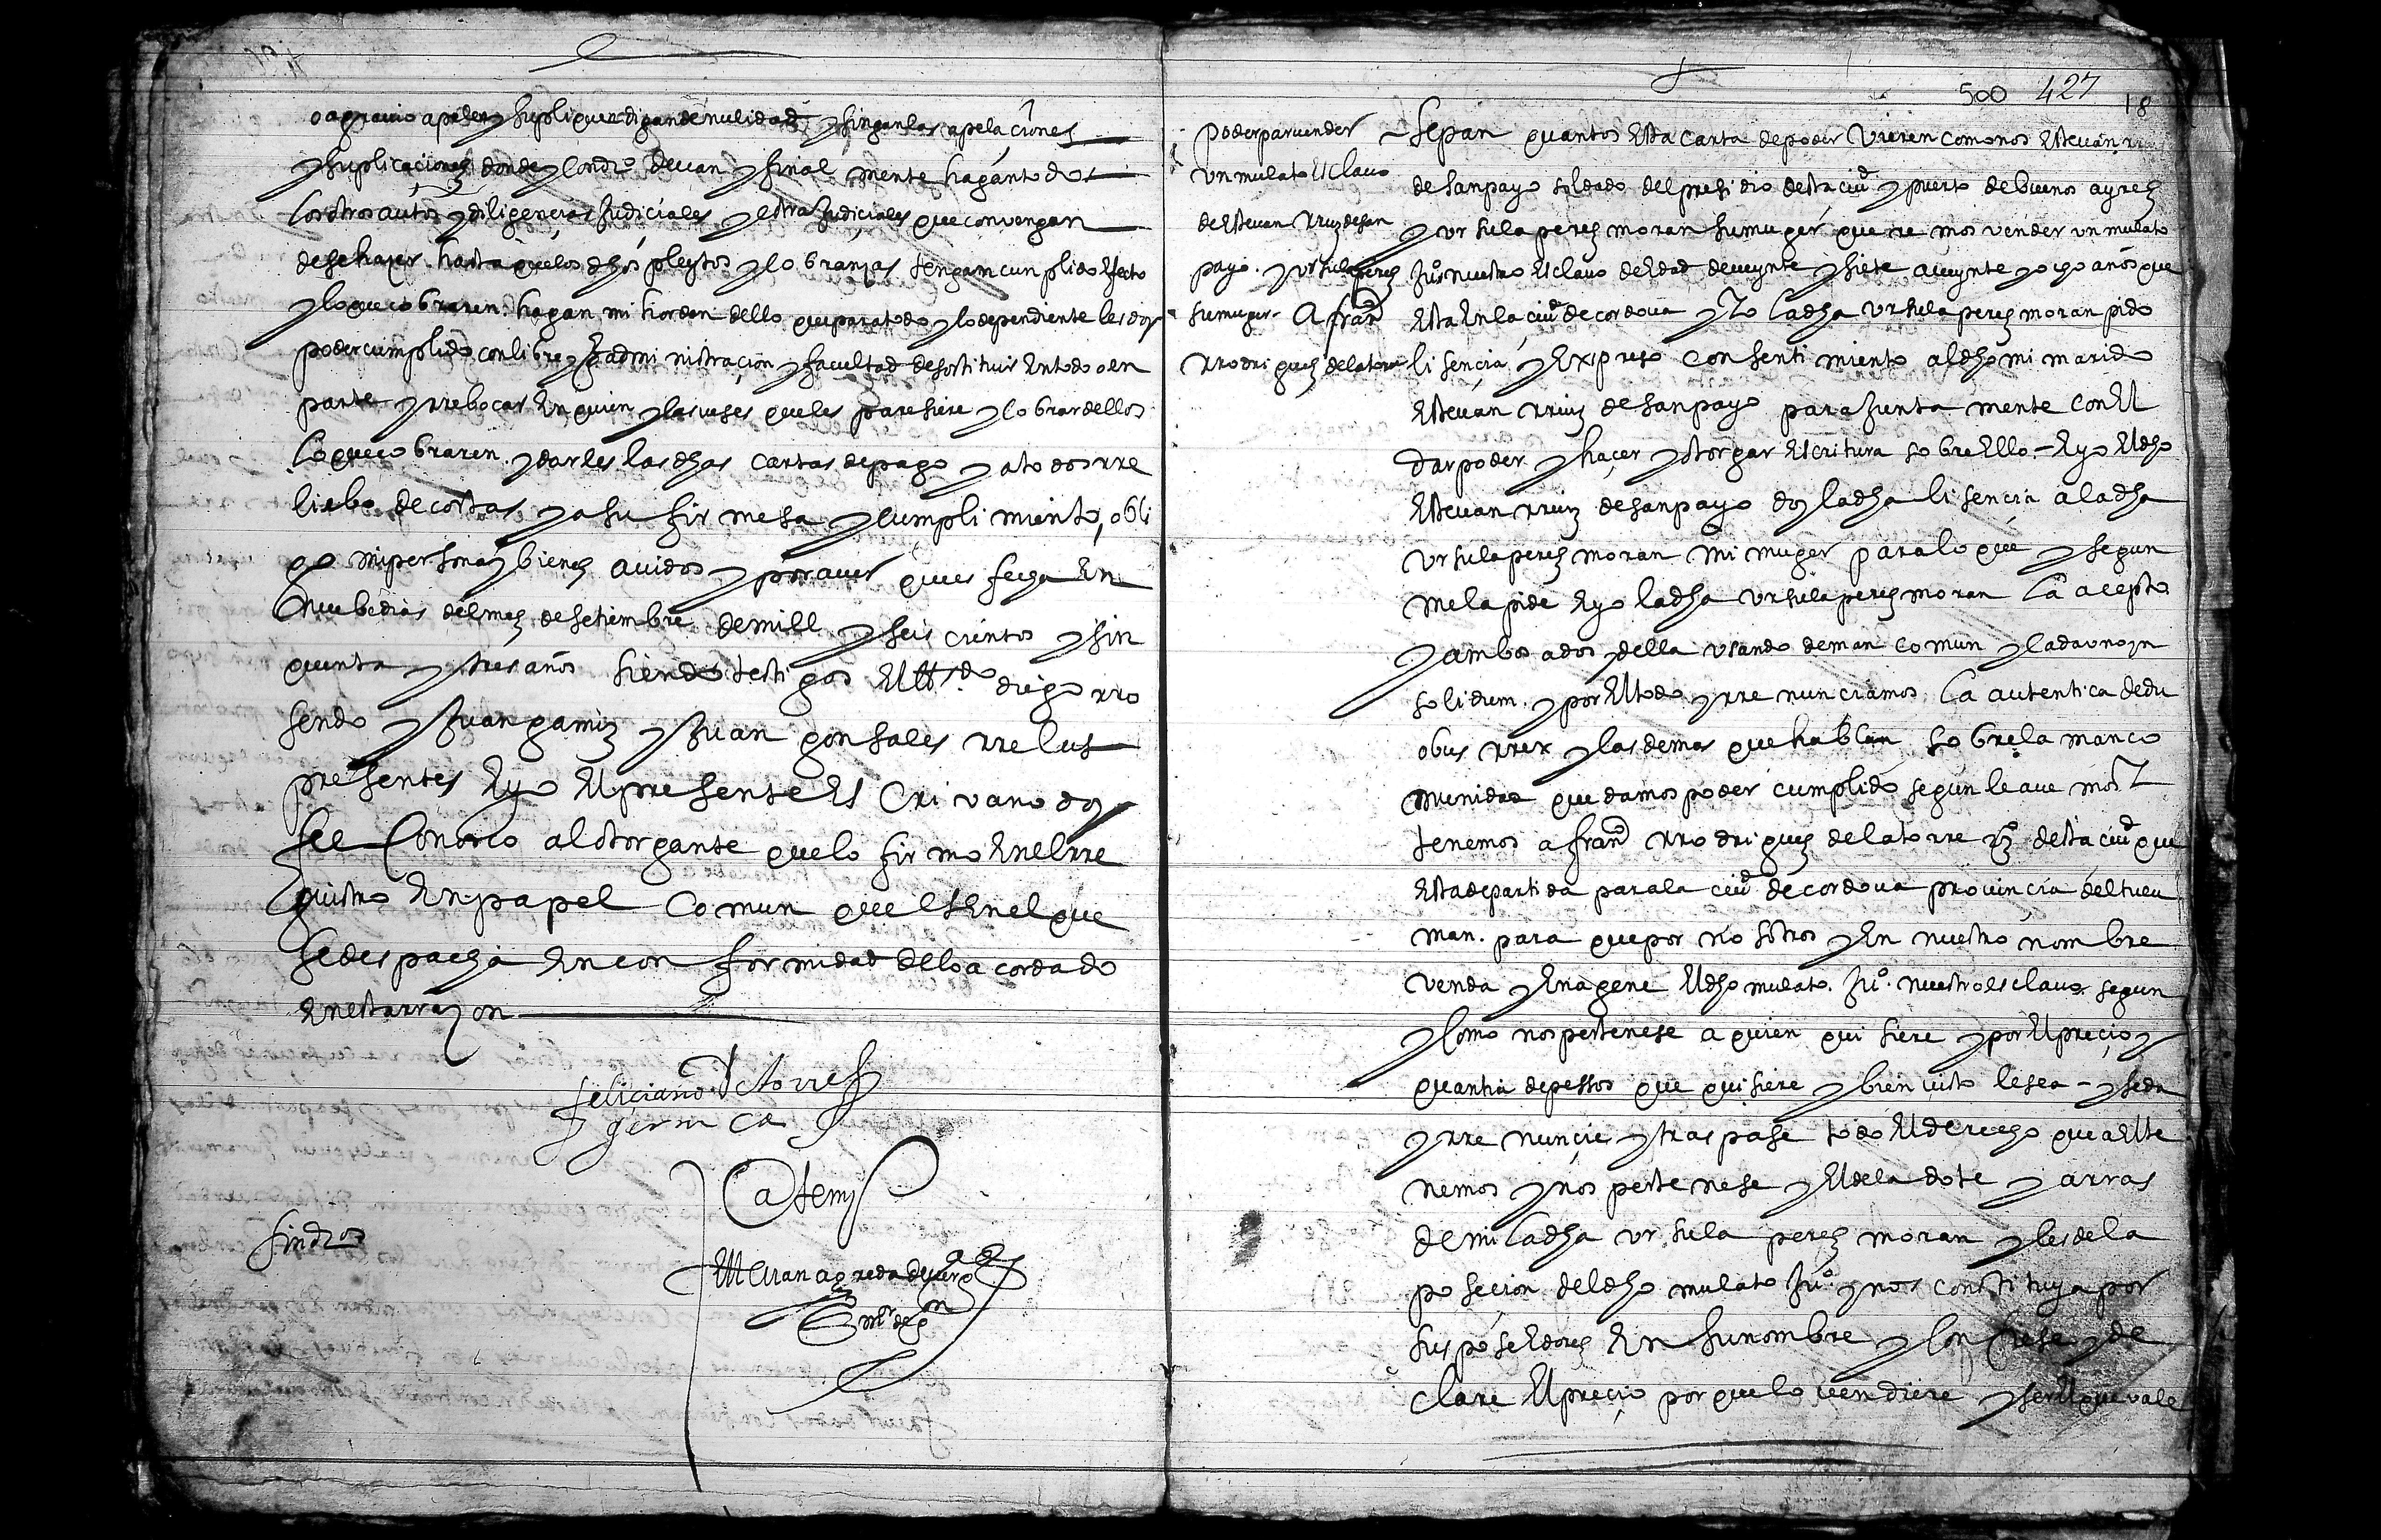 o agravio apelen y supliquen digan de nulidad y sigan las apelaciones
y suplicaciones donde y con dro devan y final mente hagan todos
los otros autos y diligencias Judiciales y estra Judiciales que convengan
de se haçer hasta que los dhos pleytos y cobranças tengan cunplido efecto
y lo que cobraren hagan mi horden dello que para todo y lo dependiente les doy
poder cumplido con libre y admi nistraçion y facultad de sostituir en todo o en
parte y rrebocar en quien y las veses que les paresiere y cobrar dellos
lo que cobraren y darles las dhas cartas de pago y a todos rre
liebo de costas y a su fir mesa y cumpli miento obli
go mi persona y bienes avidos y por aver ques fecha en
nuebe dias del mes de setiembre de mill y seis cientos y sin
quenta y tres años siendo testi gos el diego rro
sendo y Juan gamiz y Juan gonsales rrelus
presentes E yo el presente es crivano doy
fee conosco al otorgante que lo fir mo en el rre
gistro en papel comun que es en el que
se despacha en con formidad de lo acordado
en esta rraçon
feliciano de torres
gernica
Ante mi
sin dros
Juan agreda de vergara
500 427 18
poder para vender
un mulato esclavo
de estevan rruiz de san
payo y ursula peres
su muger A franco
rrodri gues de la torre
Sepan quantos esta carta de poder vieren como nos estevan rruiz
de sanpayo soldado del presidio desta ciud y puerto de buenos ayres
y ur sula peres moran su muger que tenemos vender un mulato
Juo nuestro esclavo de edad de veynte y siete a veynte y ocho años que
esta en la ciud de cordova y yo la dha ursula peres moran pido
li sencia y expreso con senti miento al dho mi marido
estevan rruiz de sanpayo para Junta mente con el
dar poder y haçer y otorgar escritura sobre ello - E yo el dho
estevan rruiz de sanpayo doy la dha li sencia a la dha
ursula peres moran mi muger para lo que y segun
me la pide E yo la dha ursula peres moran la acepto
y ambos a dos y della usando de man comun y cada uno yn
solidum y por el todo y rre nunciamos la autentica de du
obus rrex y las demas que hablan sobre la manco
munidad que damos poder cumplido segun le ave mos y
tenemos a franco rrodrigues de la torre vzo desta ciud que
esta de partida para la ciud de cordova provincia del tucu
man para que por no sotros y en nuestro nombre
venda y enagene el dho mulato Juo nuestro esclavo segun
y como nos pertenese a quien qui siere y por el preçio y
quantia de pessos que quisiere y bien visto le sea - y seda
y rre nuncie y tras pase todo el derecho que a el te
nemos y nos perte nese y el de la dote y arras
de mi la dha ur sula peres moran y les de la
po secion del dho mulato Juo y nos constituya por
sus poseedores en su nombre y con fiese y de
clare el preçio por que lo vendiere y ser el que vale